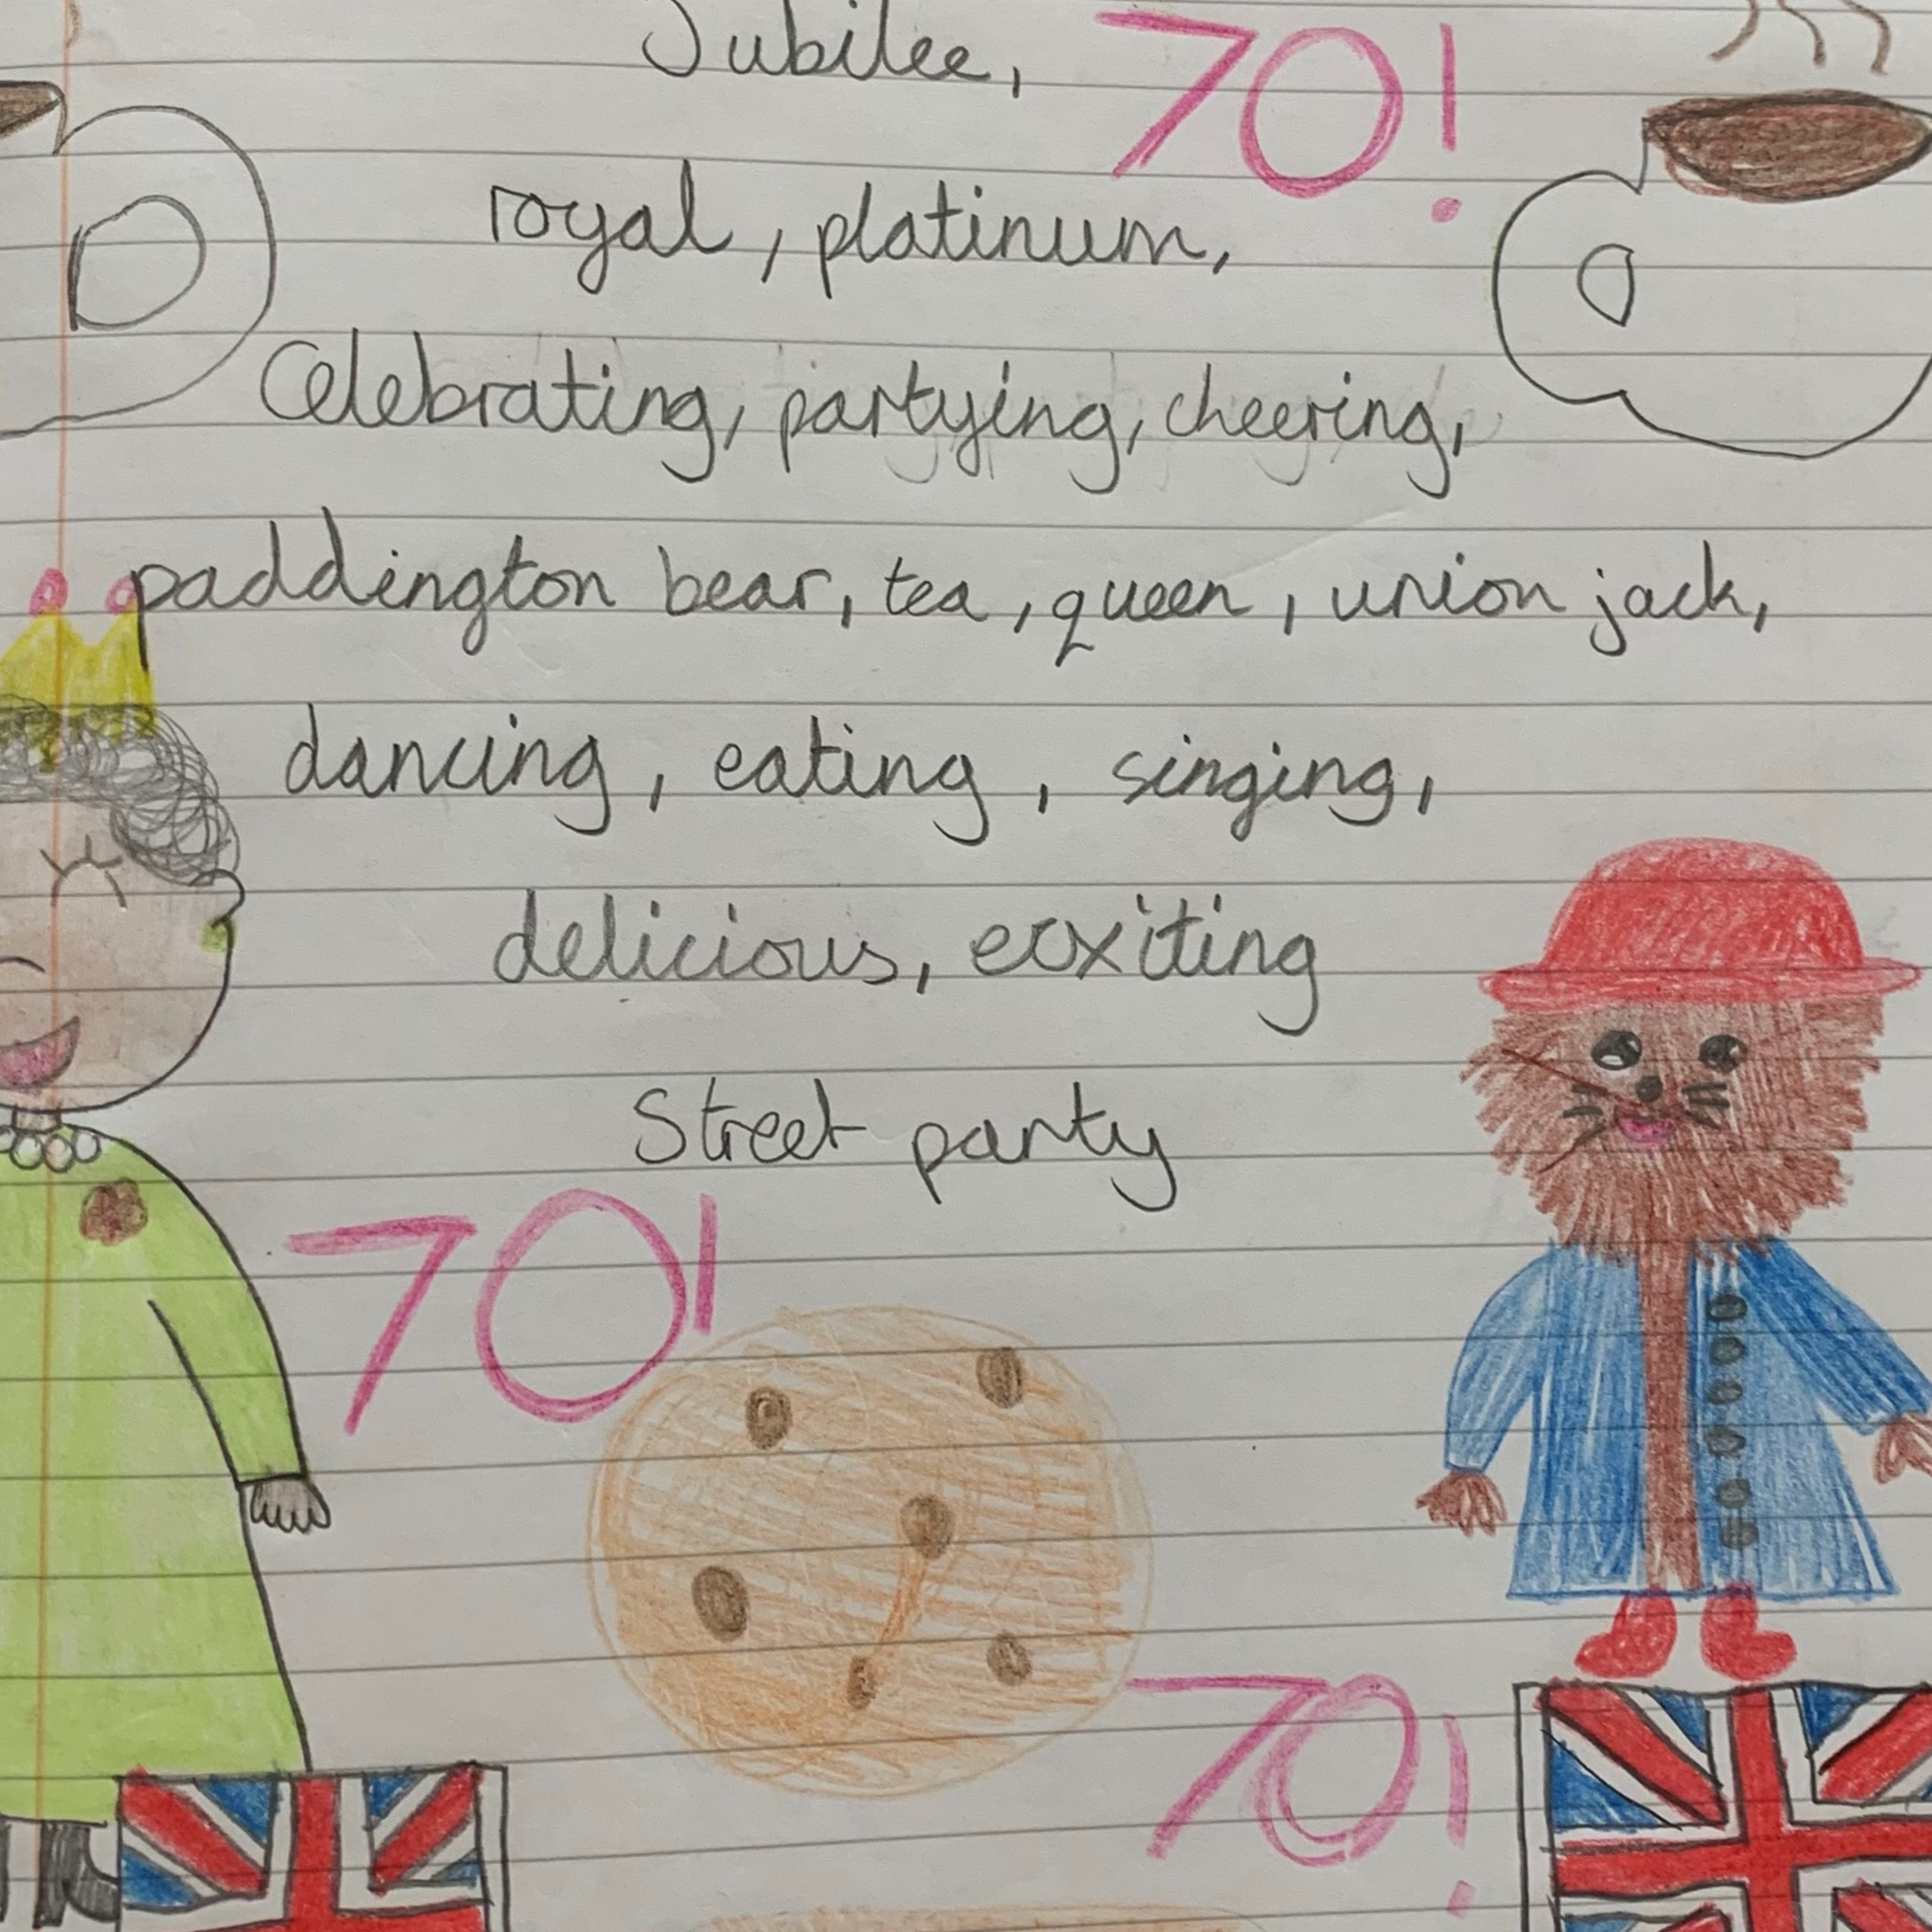 Jubilee, 70!
royal, platinum,
Celebrating, partying, cheering,
paddington bear, tea, queen, union jack,
dancing, eating, singing,
delicious, ecxiting
Street party
70!
70!